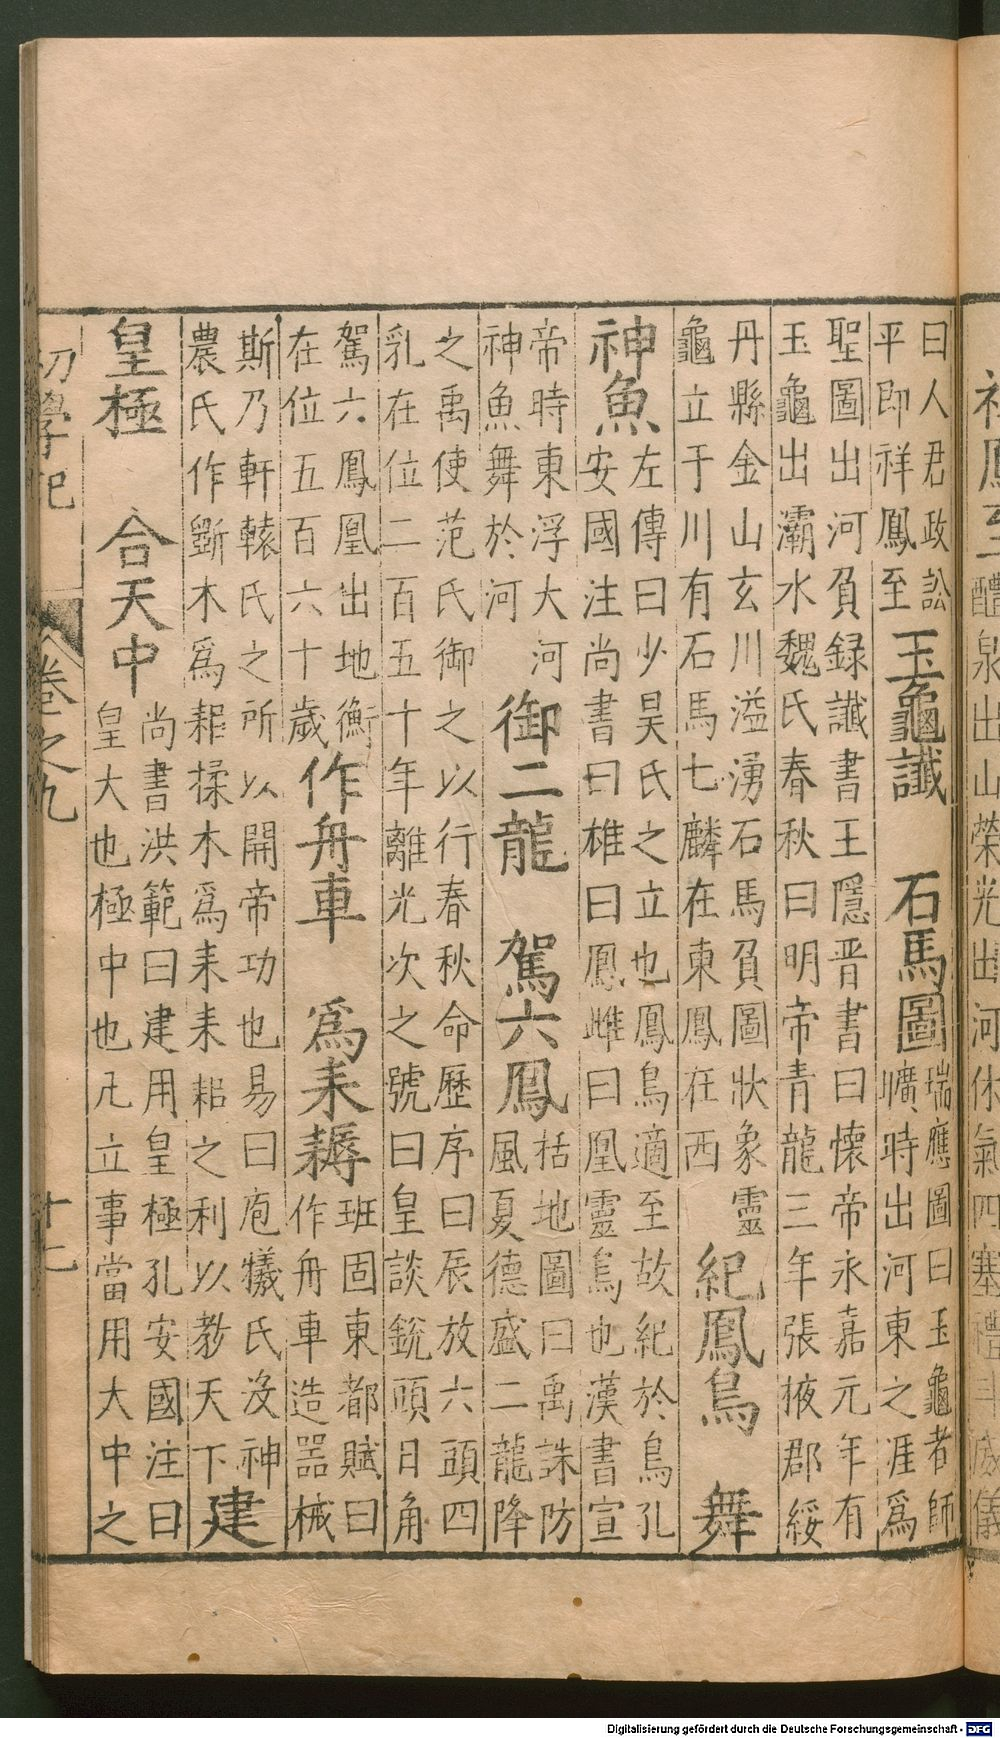 神鳳至
醴泉出山榮光出河休氣四塞禮斗威儀
曰人君政訟
平即祥鳳至
玉龜讖 石馬圖
瑞應圖曰玉龜者師
曠時出河東之涯爲
聖圖出河負録讖書王隱晋書曰懐帝永嘉元年有
玉龜出灞水魏氏春秋曰明帝青龍三年張掖郡綏
丹縣金山玄川溢湧石馬負圖狀象靈
龜立于川有石馬七麟在東鳳在西
紀鳳鳥 舞
神魚
左傳曰少昊氏之立也鳳鳥適至故紀於鳥孔
安國注尚書曰雄曰鳳雌曰凰靈鳥也漢書宣
帝時東浮大河
神魚舞於河
御二龍 駕六鳳
括地圖曰禹誅防
風夏德盛二龍降
之禹使范氏御之以行春秋命歷序曰辰放六頭四
乳在位二百五十年離光次之號曰皇談銳頭日角
駕六鳳凰出地衡
在位五百六十歲
作舟車 爲耒耨
班固東都賦曰
作舟車造器械
斯乃軒轅氏之所以開帝功也易曰庖犧氏沒神
農氏作斲木爲耜揉木爲耒耒耜之利以教天下
建
皇極 合天中
尚書洪範曰建用皇極孔安國注曰
皇大也極中也凡立事當用大中之
初學記 卷之九 十二
Digitalisierung gefördert durch die Deutsche Forschungsgemeinschaft - DFG